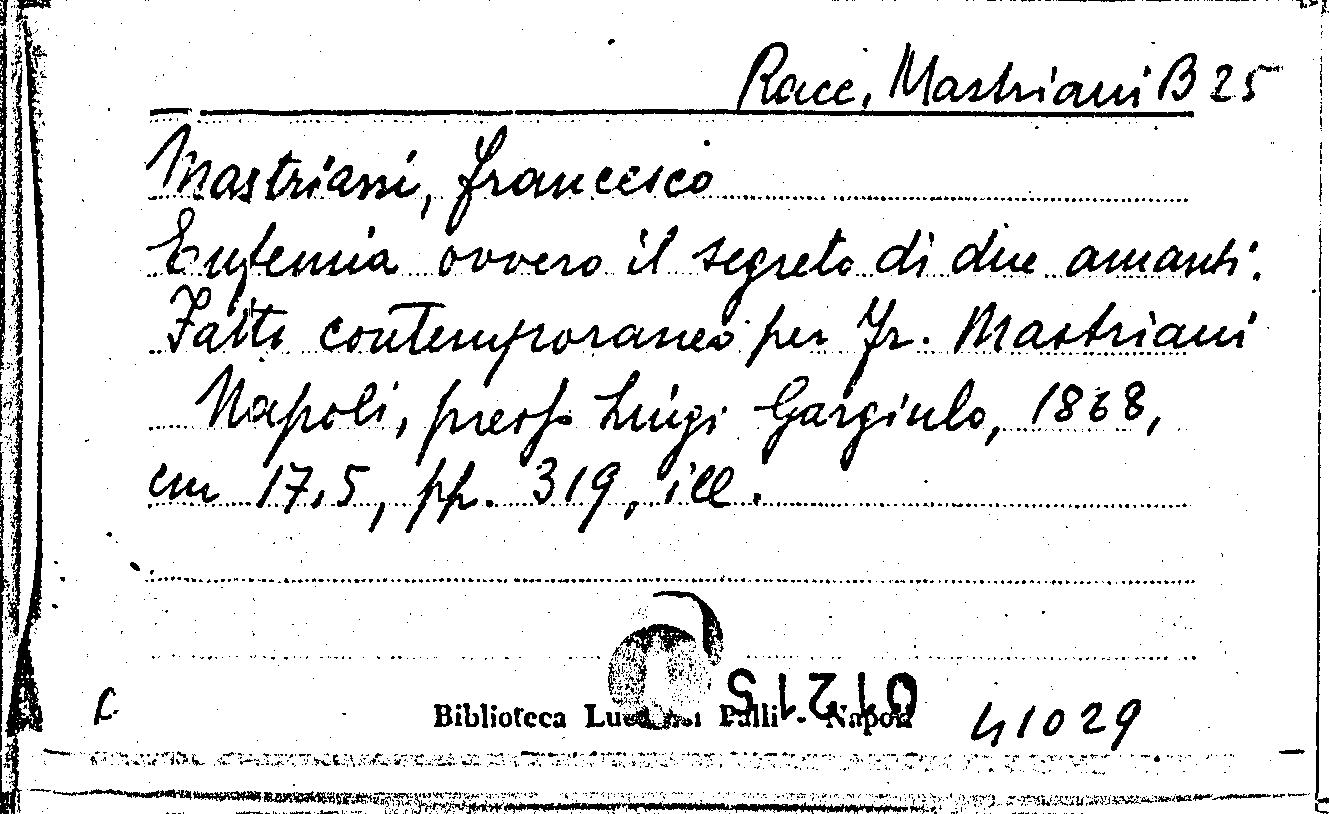 Racc. Mastriani B 25
Mastriani, Francesco
Eufemia ovvero il segreto di due amanti.
Fatto contemporaneo per Fr. Mastriani
Napoli, presso Luigi Gargiulo, 1868,
cm 17,5, pp. 319, ill.
Biblioteca Lucchesi Palli - Napoli
41029